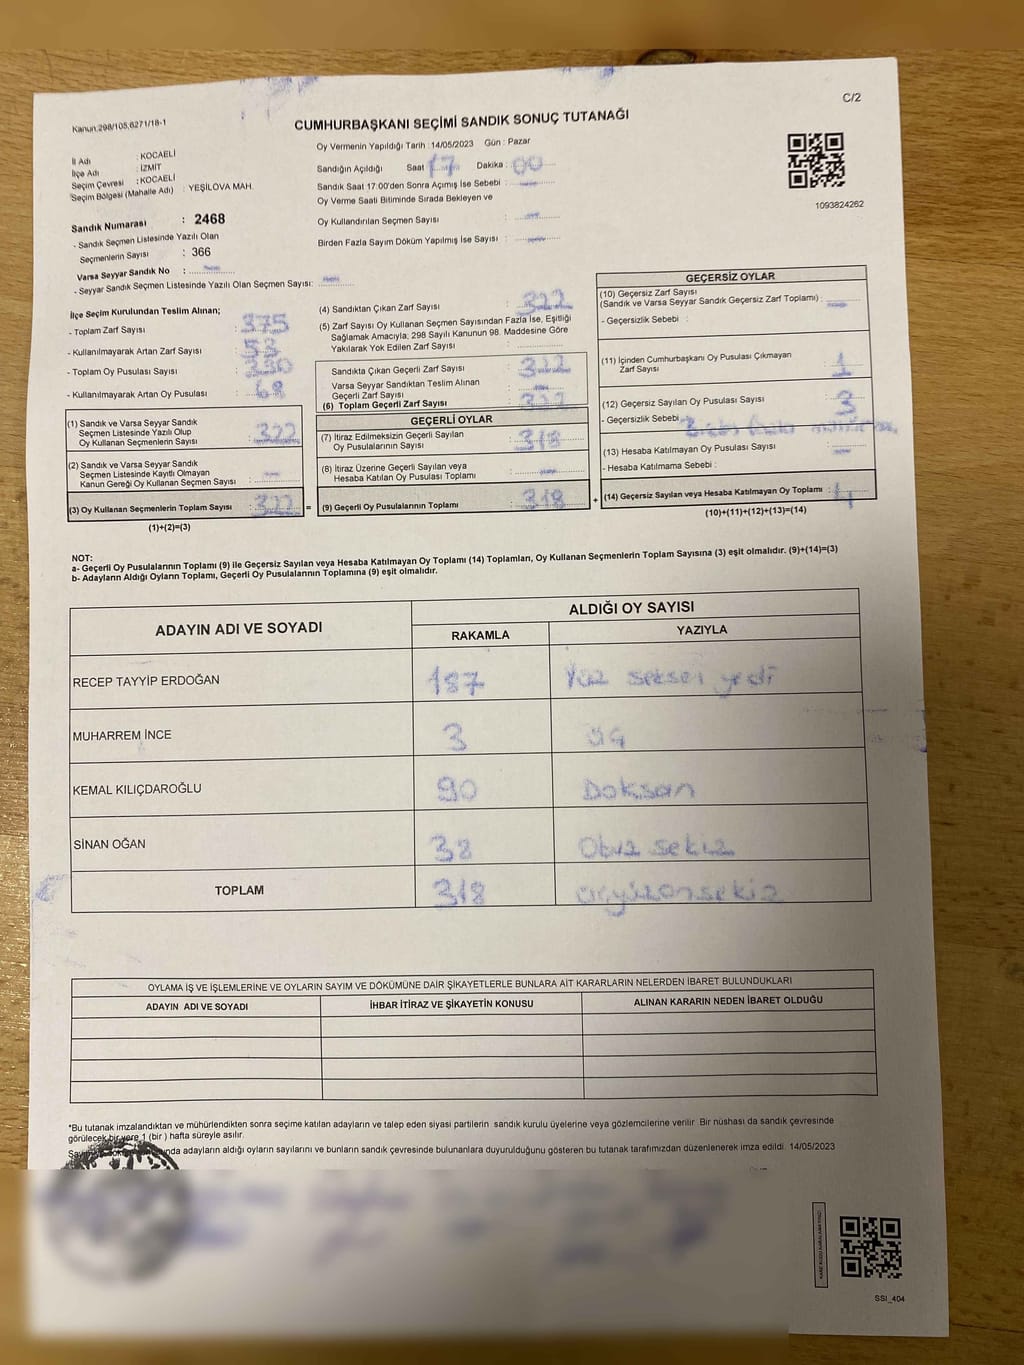 C/2
Kanun:298/105,6271/18-1
CUMHURBAŞKANI SEÇİMİ SANDIK SONUÇ TUTANAĞI
İl Adı : KOCAELİ
İlçe Adı : İZMİT
Seçim Çevresi : KOCAELİ
Seçim Bölgesi (Mahalle Adı) : YEŞİLOVA MAH.
Sandık Numarası : 2468
- Sandık Seçmen Listesinde Yazılı Olan
Seçmenlerin Sayısı : 366
Varsa Seyyar Sandık No :
- Seyyar Sandık Seçmen Listesinde Yazılı Olan Seçmen Sayısı:
Oy Vermenin Yapıldığı Tarih : 14/05/2023 Gün : Pazar
Sandığın Açıldığı Saat 17 Dakika : 00
Sandık Saat 17:00'den Sonra Açımış İse Sebebi :
Oy Verme Saati Bitiminde Sırada Bekleyen ve
Oy Kullandırılan Seçmen Sayısı :
Birden Fazla Sayım Döküm Yapılmış İse Sayısı :
1093824262
İlçe Seçim Kurulundan Teslim Alınan;
- Toplam Zarf Sayısı : 375
- Kullanılmayarak Artan Zarf Sayısı : 53
- Toplam Oy Pusulası Sayısı :
- Kullanılmayarak Artan Oy Pusulası : 68
(1) Sandık ve Varsa Seyyar Sandık
Seçmen Listesinde Yazılı Olup
Oy Kullanan Seçmenlerin Sayısı : 322
(2) Sandık ve Varsa Seyyar Sandık
Seçmen Listesinde Kayıtlı Olmayan
Kanun Gereği Oy Kullanan Seçmen Sayısı :
(3) Oy Kullanan Seçmenlerin Toplam Sayısı : 322 =
(1)+(2)=(3)
(4) Sandıktan Çıkan Zarf Sayısı : 322
(5) Zarf Sayısı Oy Kullanan Seçmen Sayısından Fazla İse, Eşitliği
Sağlamak Amacıyla, 298 Sayılı Kanunun 98. Maddesine Göre
Yakılarak Yok Edilen Zarf Sayısı :
Sandıkta Çıkan Geçerli Zarf Sayısı : 322
Varsa Seyyar Sandıktan Teslim Alınan
Geçerli Zarf Sayısı :
(6) Toplam Geçerli Zarf Sayısı : 322
GEÇERLİ OYLAR
(7) İtiraz Edilmeksizin Geçerli Sayılan
Oy Pusulalarının Sayısı : 318
(8) İtiraz Üzerine Geçerli Sayılan veya
Hesaba Katılan Oy Pusulası Toplamı :
(9) Geçerli Oy Pusulalarının Toplamı : 318 +
GEÇERSİZ OYLAR
(10) Geçersiz Zarf Sayısı
(Sandık ve Varsa Seyyar Sandık Geçersiz Zarf Toplamı) :
- Geçersizlik Sebebi :
(11) İçinden Cumhurbaşkanı Oy Pusulası Çıkmayan
Zarf Sayısı : 1
(12) Geçersiz Sayılan Oy Pusulası Sayısı : 3
- Geçersizlik Sebebi
(13) Hesaba Katılmayan Oy Pusulası Sayısı :
- Hesaba Katılmama Sebebi :
(14) Geçersiz Sayılan veya Hesaba Katılmayan Oy Toplamı : 4
(10)+(11)+(12)+(13)=(14)
NOT:
a- Geçerli Oy Pusulalarının Toplamı (9) ile Geçersiz Sayılan veya Hesaba Katılmayan Oy Toplamı (14) Toplamları, Oy Kullanan Seçmenlerin Toplam Sayısına (3) eşit olmalıdır. (9)+(14)=(3)
b- Adayların Aldığı Oyların Toplamı, Geçerli Oy Pusulalarının Toplamına (9) eşit olmalıdır.
ADAYIN ADI VE SOYADI ALDIĞI OY SAYISI
RAKAMLA YAZIYLA
RECEP TAYYİP ERDOĞAN 187 Yüz seksen yedi
MUHARREM İNCE 3 üç
KEMAL KILIÇDAROĞLU 90 Doksan
SİNAN OĞAN 38 Otuz sekiz
TOPLAM 318 üçyüzonsekiz
OYLAMA İŞ VE İŞLEMLERİNE VE OYLARIN SAYIM VE DÖKÜMÜNE DAİR ŞİKAYETLERLE BUNLARA AİT KARARLARIN NELERDEN İBARET BULUNDUKLARI
ADAYIN ADI VE SOYADI İHBAR İTİRAZ VE ŞİKAYETİN KONUSU ALINAN KARARIN NEDEN İBARET OLDUĞU
*Bu tutanak imzalandıktan ve mühürlendikten sonra seçime katılan adayların ve talep eden siyasi partilerin sandık kurulu üyelerine veya gözlemcilerine verilir. Bir nüshası da sandık çevresinde
görülecek bir yere 1 (bir ) hafta süreyle asılır.
adayların aldığı oyların sayılarını ve bunların sandık çevresinde bulunanlara duyurulduğunu gösteren bu tutanak tarafımızdan düzenlenerek imza edildi. 14/05/2023
SSI_404